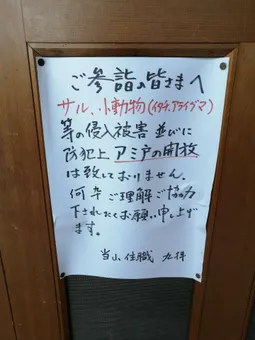 ご参詣の皆さまへ
サル、小動物(イタチ、アライグマ)
等の侵入被害 並びに
防犯上 アミ戸の開放
は致しておりません。
何卒ご理解ご協力
下されたくお願い申し上げ
ます。
当山 住職 九拝